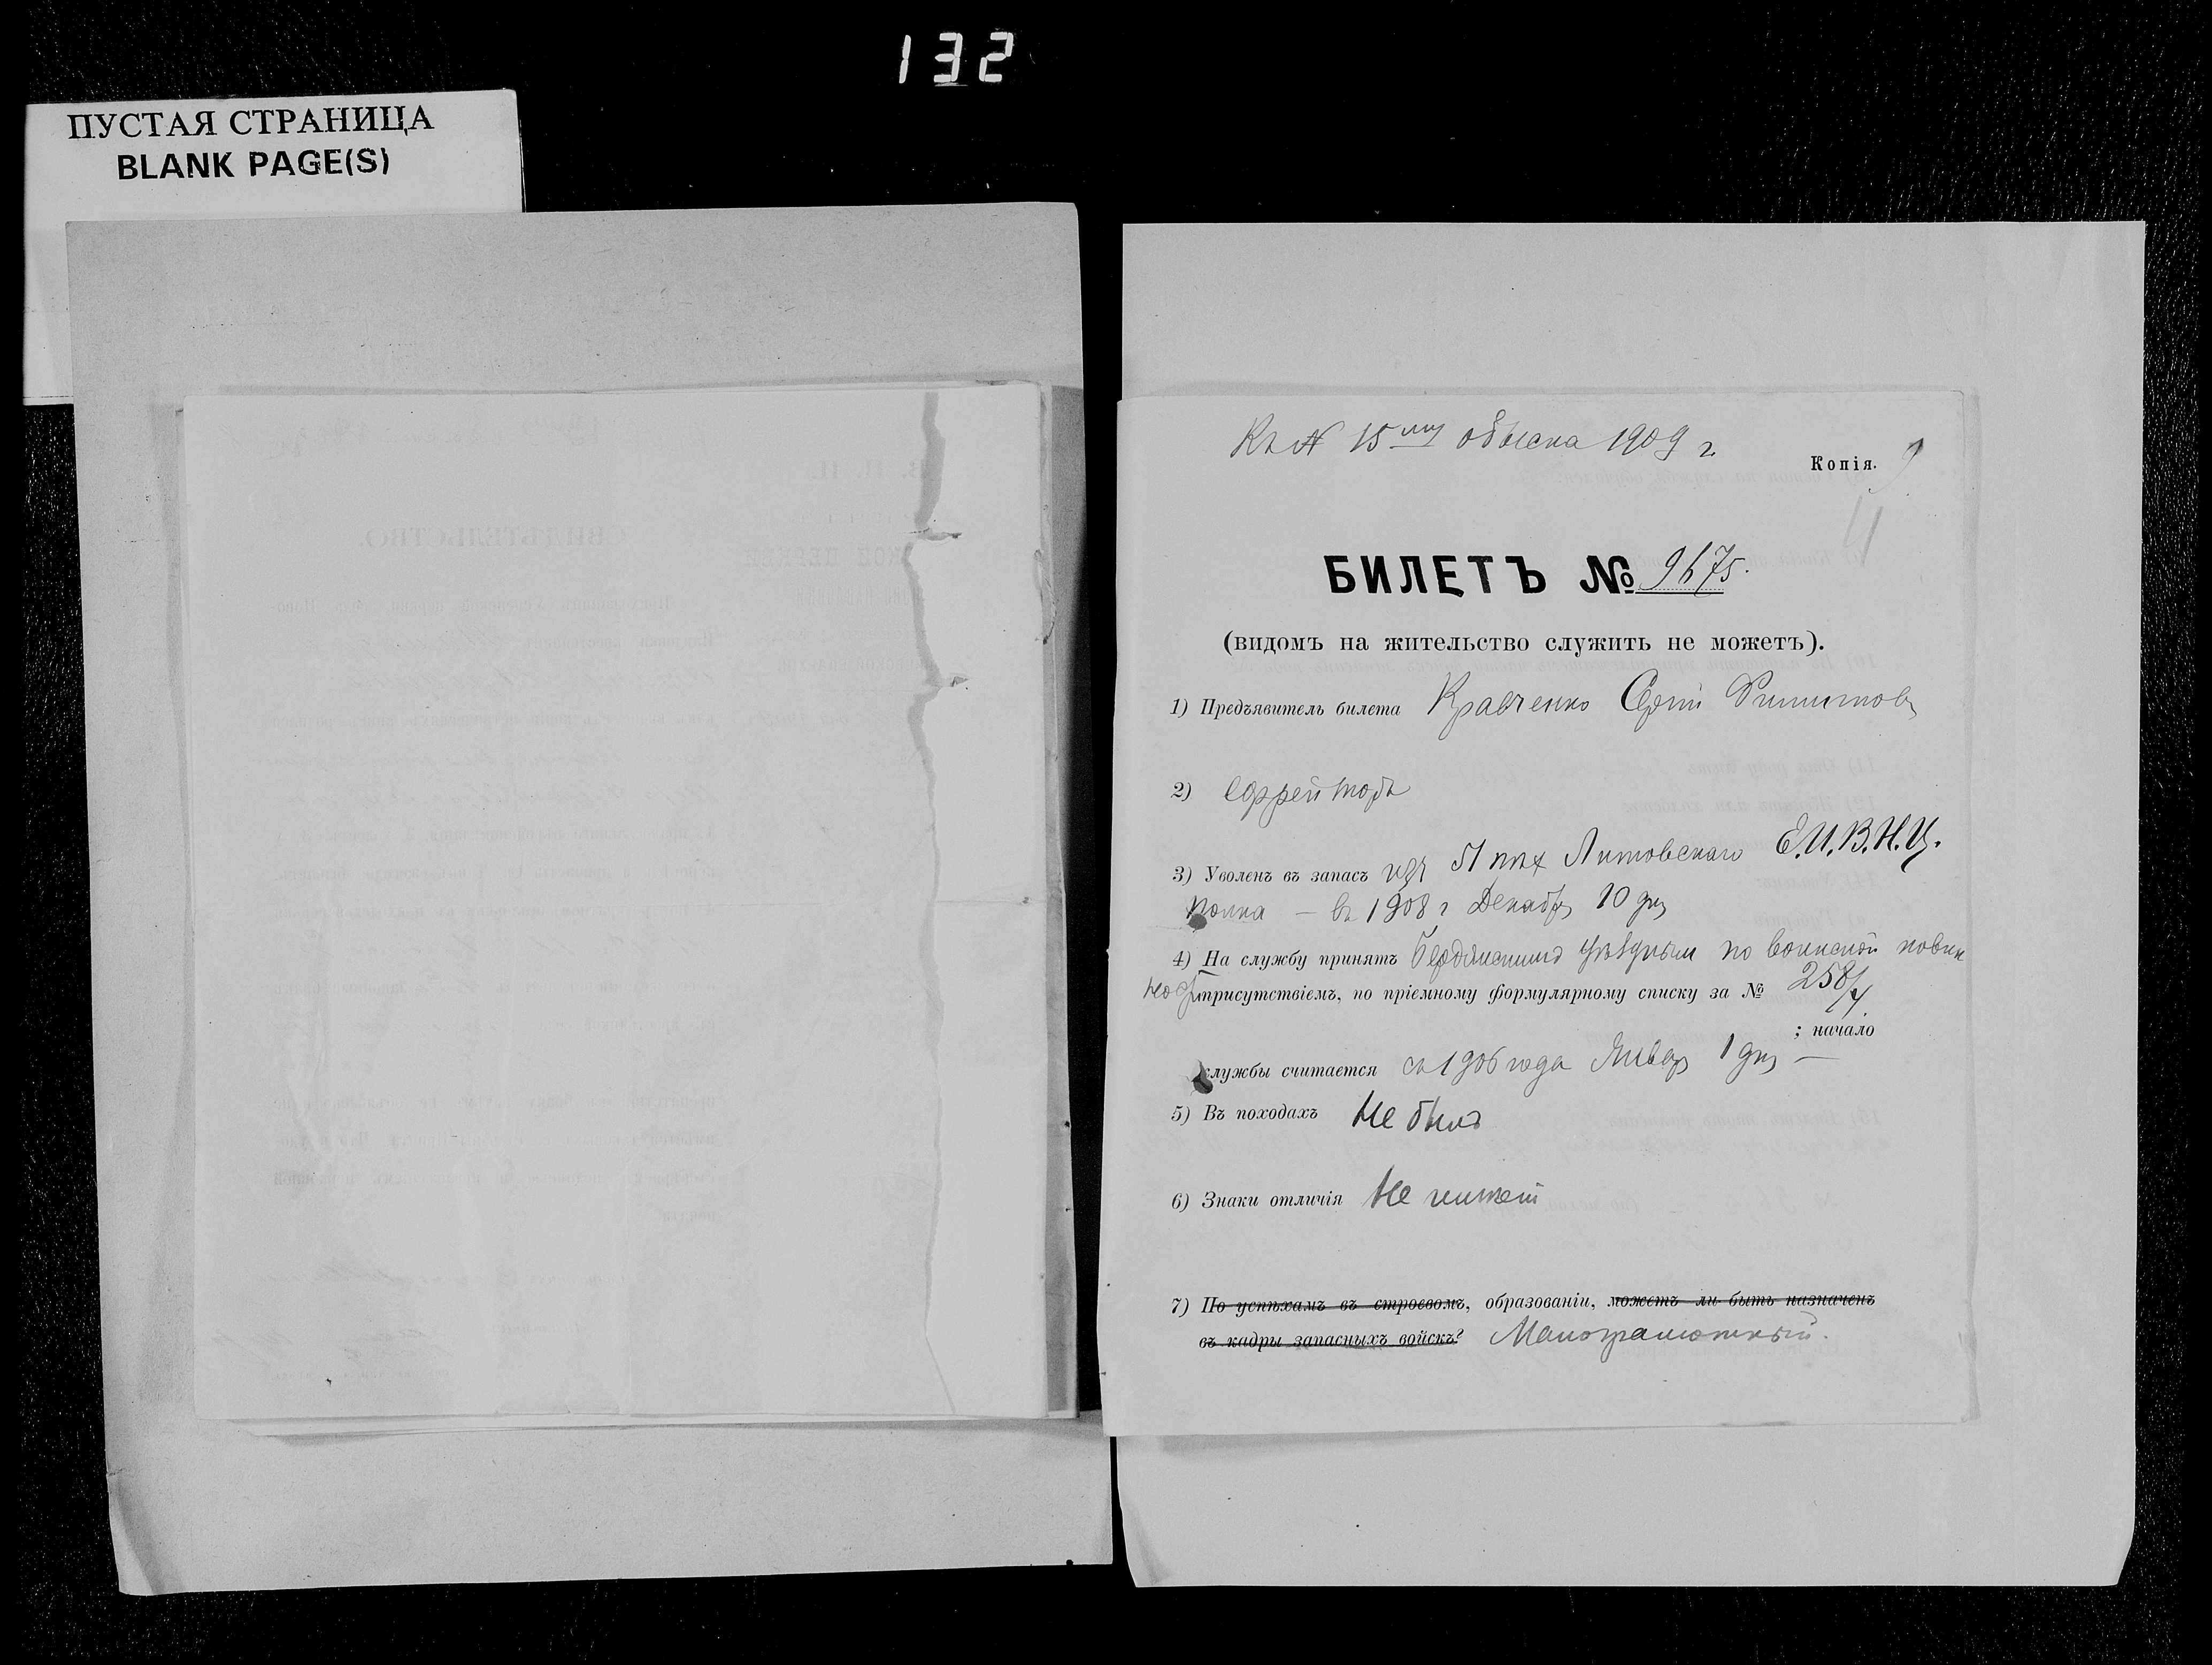 132
ПУСТАЯ СТРАНИЦА
BLANK PAGE(S)
Къ № 15му обыска 1909 г.
Копія.
9
БИЛЕТЪ № 9675.
(видомъ на жительство служить не можетъ).
1) Предъявитель билета Кравченко Сергій Филиповъ
2) Ефрейторъ
3) Уволенъ въ запасъ изъ 51 пѣх Литовскаго Е.И.В.Н.Ц.
полка — въ 1908 г Декабря 10 дня
4) На службу принятъ Бердянскимъ уѣзднымъ по воинской повин
ности присутствіемъ, по пріемному формулярному списку за № 258/
; начало
службы считается съ 1906 года Января 1 дня —
5) Въ походахъ Не былъ
6) Знаки отличія Не имѣетъ
7) По успѣхамъ въ строевомъ, образованіи, можетъ ли быть назначенъ
въ кадры запасныхъ войскъ? Малограмотный.